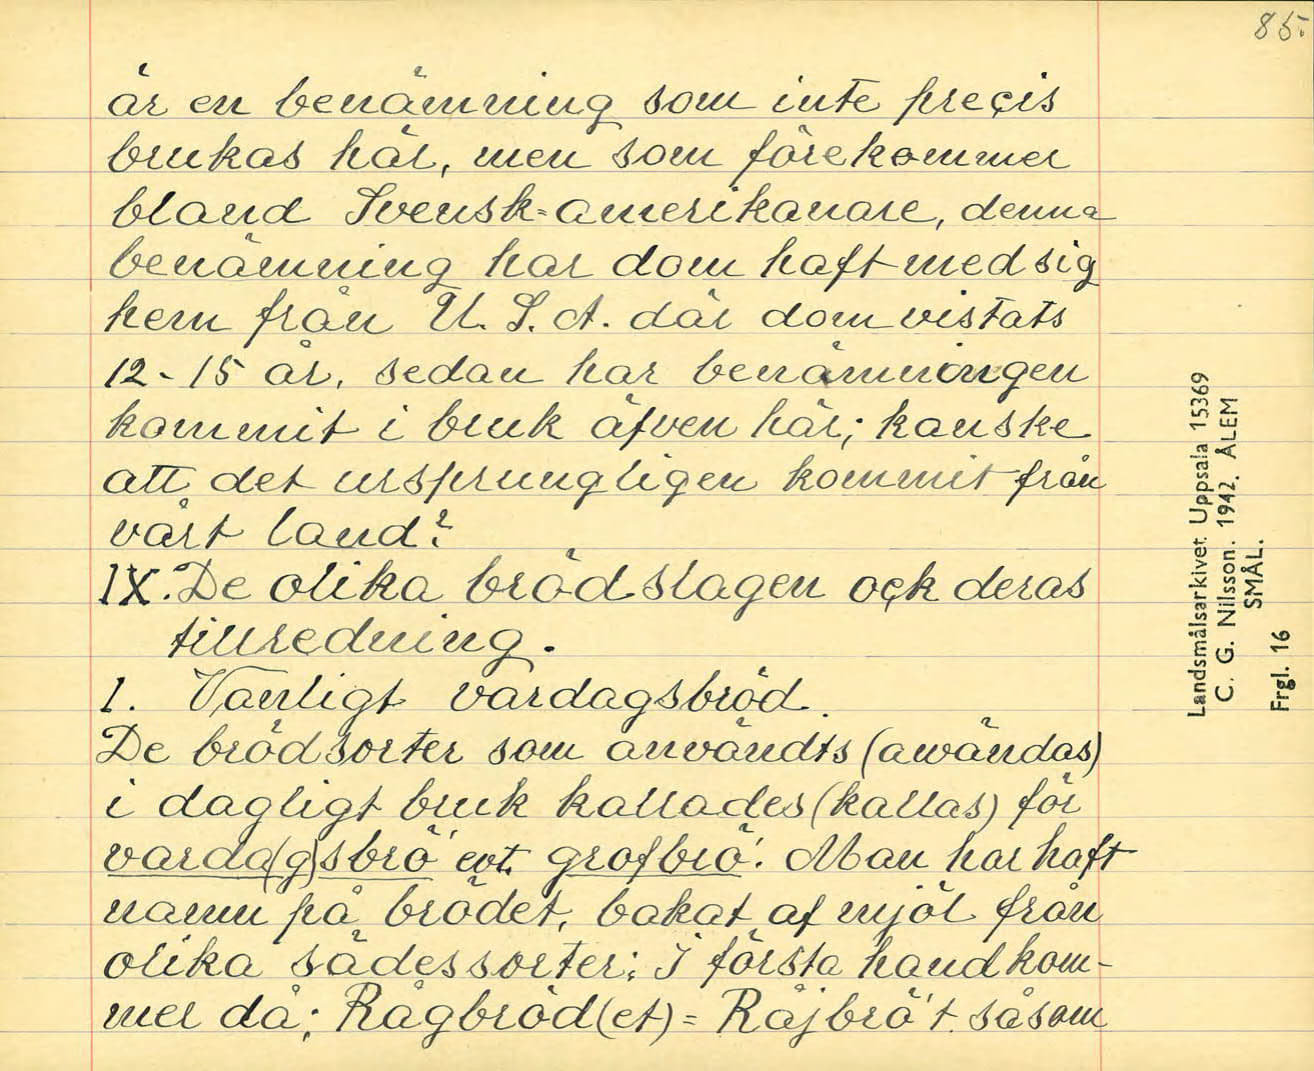 85.
är en benämning som inte preçis
brukas här, men som förekommer
bland Svensk-amerikanare, denna
benämning har dom haft med sig
hem från U.S.A. där dom vistats
12-15 år, sedan har benämningen
kommit i bruk äfven här; kanske
att det ursprungligen kommit från
vårt land?
IX. De olika brödslagen oçk deras
tillredning.
1. Vanligt vardagsbröd.
De brödsorter som användts (awändas)
i dagligt bruk kallades (kallas) för
varda(g)sbrö' evt. grofbrö'. Man har haft
namn på brödet, bakat af mjöl från
olika sädessorter; I första hand kom-
mer då; Rågbröd(et) = Råjbrö't. såsom
Landsmålsarkivet Uppsala 15369
C. G. Nilsson. 1942. ÅLEM
SMÅL.
Frgl. 16